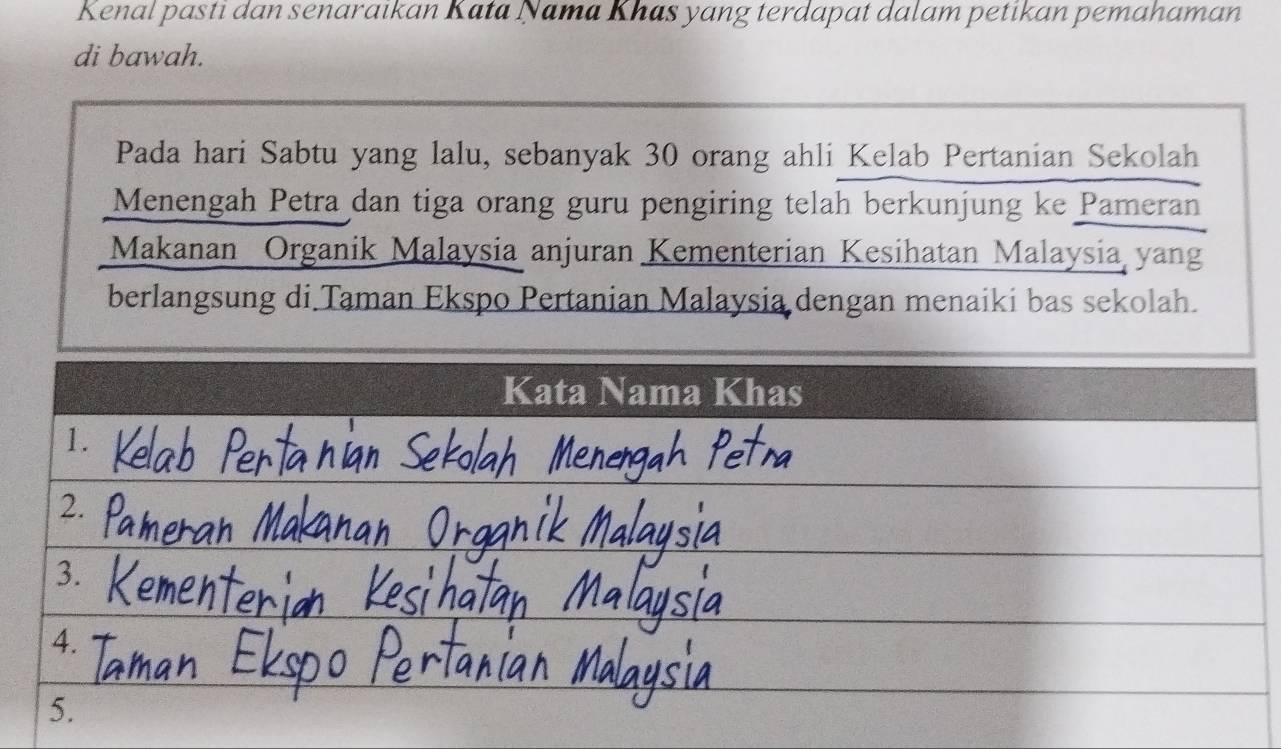 Kenal pasti dan senaraikan Kata Nama Khas yang terdapat dalam petikan pemahaman
di bawah.
Pada hari Sabtu yang lalu, sebanyak 30 orang ahli Kelab Pertanian Sekolah
Menengah Petra dan tiga orang guru pengiring telah berkunjung ke Pameran
Makanan Organik Malaysia anjuran Kementerian Kesihatan Malaysia yang
berlangsung di Taman Ekspo Pertanian Malaysia dengan menaiki bas sekolah.
Kata Nama Khas
1. Kelab Pertanian Sekolah Menengah Petra
2. Pameran Makanan Organik Malaysia
3. Kementerian Kesihatan Malaysia
4. Taman Ekspo Pertanian Malaysia
5.